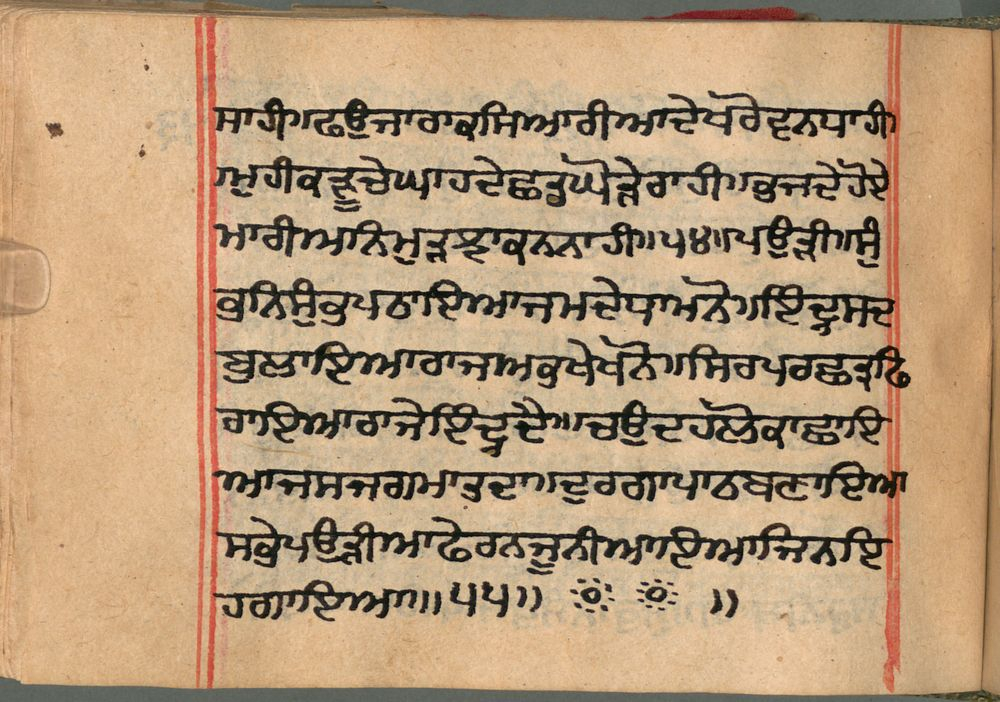 ਸਾਹੀ॥ਫਉਜਾਰਾਕਸਿਆਰੀਆਦੇਖਰੋਵਨਧਾਹੀ
॥ਮੁਹੀਕੜੂਚੇਘਾਹਦੇਛਡਘੋੜੇਰਾਹੀ॥ਭਜਦੇਹੋਏ
ਮਾਰੀਆਨਿਮੁੜਝਾਕਨਨਾਹੀ॥੫੪॥ਪਉੜੀ॥ਸੁੰ
ਭਨਿਸੁੰਭਪਠਾਇਆਜਮਦੇਧਾਮਨੋ॥ਇੰਦ੍ਰਸਦ
ਬੁਲਾਇਆਰਾਜਅਭਖੇਖਨੋ॥ਸਿਰਪਰਛਤ੍ਰਫਿ
ਰਾਇਆਰਾਜੇਇੰਦ੍ਰਦੈ॥ਚਉਦਹਲੋਕਾਛਾਇ
ਆਜਸਜਗਮਾਤਦਾ॥ਦੁਰਗਾਪਾਠਬਣਾਇਆ
ਸਭੇਪਉੜੀਆਫੇਰਨਜੂਨੀਆਇਆਜਿਨਇ
ਹਗਾਇਆ॥੫੫॥ ॥